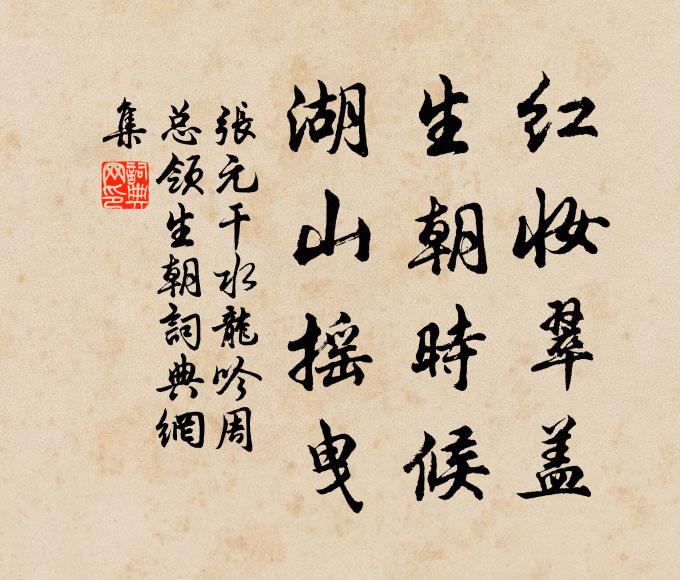 红妆翠盖
生朝時候
湖山摇曳
張元干水龍吟周
总领生朝詞典網
集
詞典网印